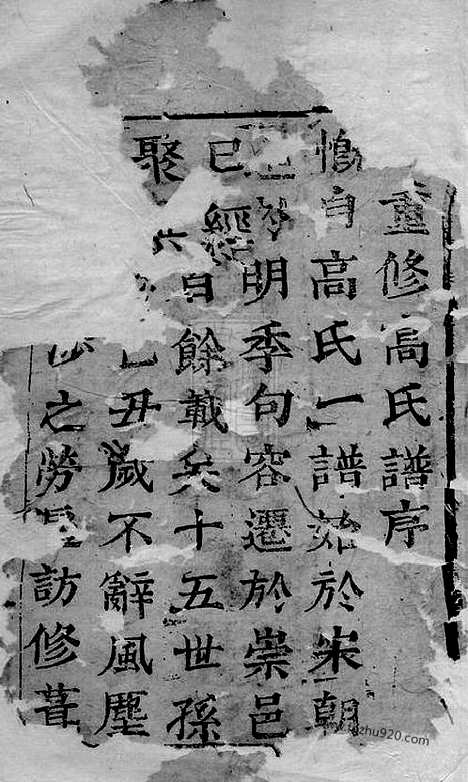 重修高氏譜序
惟自高氏一譜始於宋朝
明季句容遷於崇邑
已經百餘載矣十五世孫
聚丑歲不辭風塵
之勞訪修葺